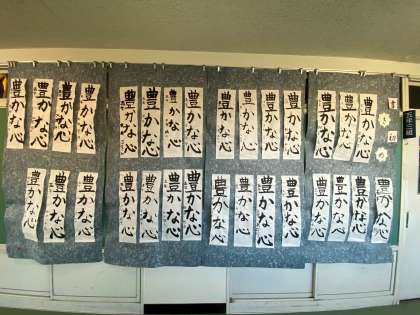 豊かな心
豊かな心
豊かな心
豊かな心
豊かな心
豊かな心
豊かな心
豊かな心
豊かな心
豊かな心
豊かな心
豊かな心
豊かな心
豊かな心
豊かな心
豊かな心
豊かな心
豊かな心
豊かな心
豊かな心
豊かな心
豊かな心
豊かな心
豊かな心
豊かな心
豊かな心
豊かな心
豊かな心
豊かな心
豊かな心